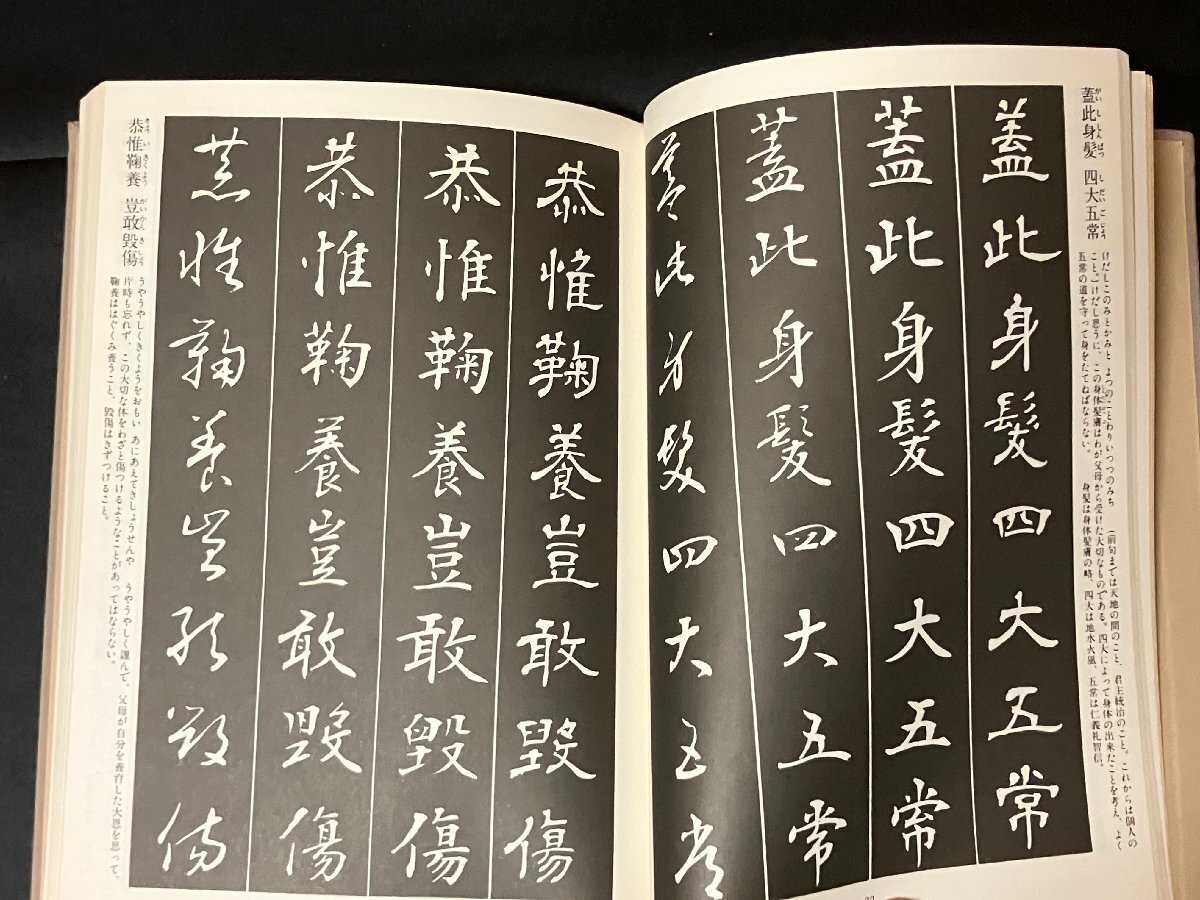 蓋此身髪 四大五常
がいししんぱつ しだいごじょう
けだしこのみとかみと よつのことわりいつつのみち (前句までは天地の間のこと、君主統治のこと。これからは個人の
こと。)けだし思うに、この身体髪膚はわが父母から受けた大切なものである。四大によって身体の出来たことを考え、よく
五常の道を守って身をたてねばならない。 身髪は身体髪膚の略、四大は地水火風、五常は仁義礼智信。
蓋此身髪四大五常
蓋此身髪四大五常
蓋此身髪四大五常
蓋此身髪四大五常
恭惟鞠養豈敢毀傷
恭惟鞠養豈敢毀傷
恭惟鞠養豈敢毀傷
恭惟鞠養豈敢毀傷
恭惟鞠養 豈敢毀傷
うやうやしくきくようをおもい あにあえてきしょうせんや うやうやしく謹んで、父母が自分を養育した大恩を思って、
片時も忘れず、この大切な体をわざと傷つけるようなことがあってはならない。
鞠養ははぐくみ養うこと、毀傷はきずつけること。